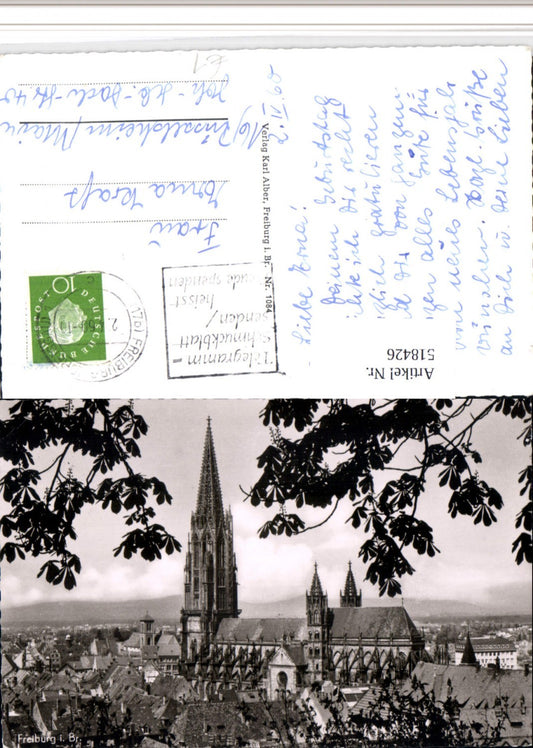 Liebe Erna!
Deinem Geburtstag
möchte ich Dir recht
herzlich gratulieren
u. Dir von ganzem Her-
zen alles Gute für's
neue Lebensjahr
wünschen. Herzl. Grüße
an Dich u. Deine Lieben
2. II. 60
Verlag Karl Alber, Freiburg i. Br. Nr. 1084
Telegramm =
Schmuckblatt
senden /
heisst
Freude spenden
(17b) FREIBURG
DEUTSCHE BUNDESPOST
10
Frau
Erna Kraft
(16) Rüsselsheim/Main
Joh.-Seb.-Bach-Str. 40
Artikel Nr.
518426
Freiburg i. Br.